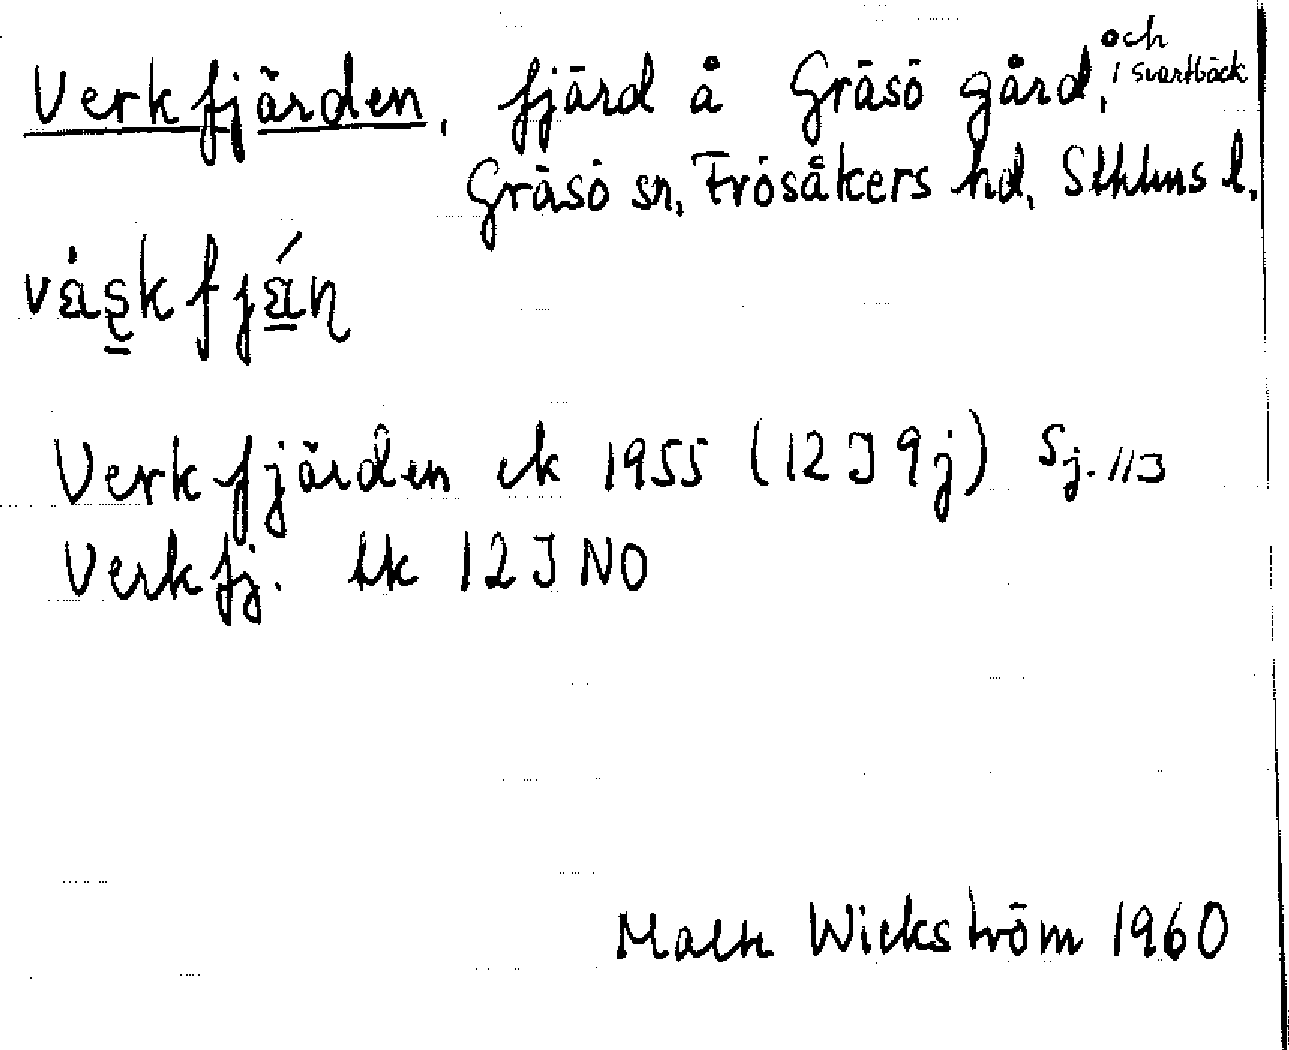 Verkfjärden, fjärd å Gräsö gård, och i Svartbäck
Gräsö sn, Frösåkers hd, Sthlms l.
Verkfjärden ek 1955 (12 J 9j) Sj. 113
Verkfj. tk 12 J NO
Wickström 1960